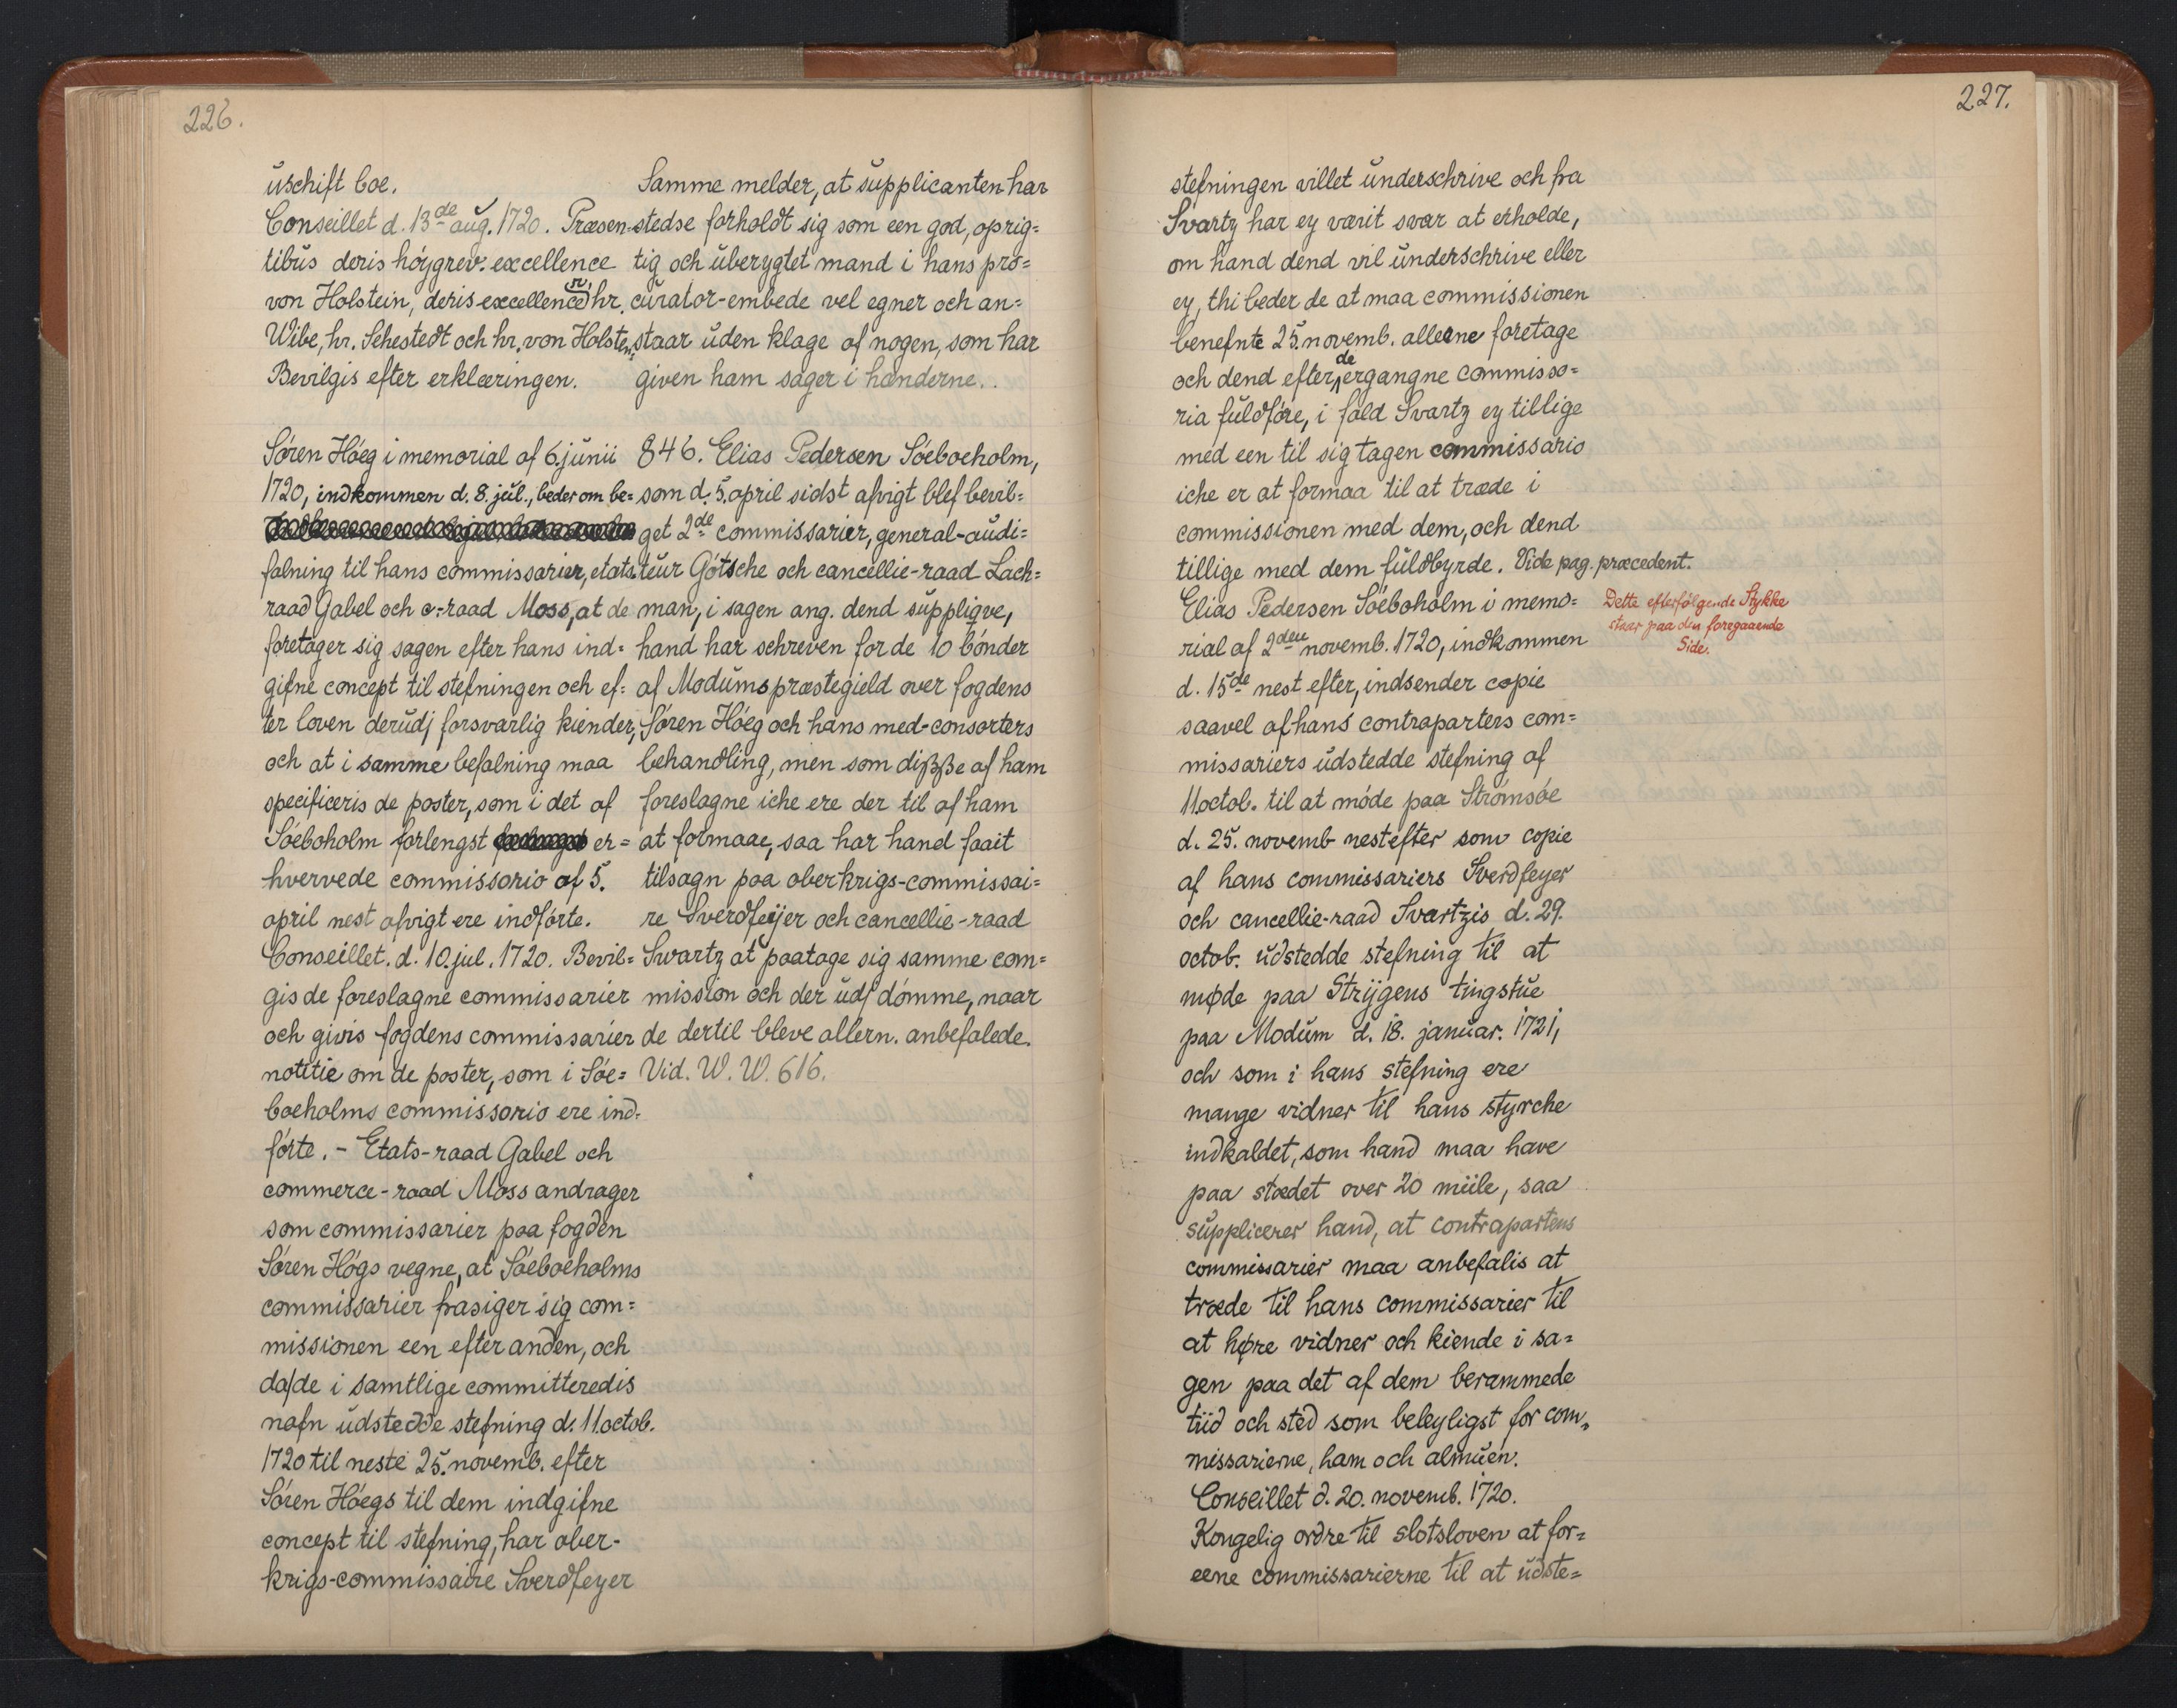 226.
uschift boe.
Conseillet d. 13de aug. 1720. Præsen-
tibus deris höygrev. excellence
von Holstein, deris excellencer hr.
Wibe, hr. Sehestedt och hr. von Holsten.
Bevilgis efter erklæringen.
Sören Höeg i memorial af 6. junii
1720, indkommen d. 8. jul., beder om be=
falning til hans commissarier, etats
raad Gabel och c:raad Moss, at de
foretager sig sagen efter hans ind=
gifne concept til stefningen och ef=
ter loven derudj forsvarlig kiender,
och at i samme befalning maa
specificeris de poster, som i det af
Söeboholm forlengst er=
hvervede commissorio af 5.
april nest afvigt ere indförte.
Conseillet. d. 10. jul. 1720. Bevil=
gis de foreslagne commissarier
och givis fogdens commissarier
notitie om de poster, som i Söe=
boeholms commissorio ere ind-
förte. - Etats-raad Gabel och
commerce-raad Moss andrager
som commissarier paa fogden
Sören Högs vegne, at Söeboeholms
commissarier frasiger sig com=
missionen een efter anden, och
da/de i samtlige committeredis
nafn udstedde stefning d. 11. octob.
1720 til neste 25. novemb. efter
Sören Höegs til dem indgifne
concept til stefning, har ober-
krigs-commissaire Sverdfeyer
Samme melder, at supplicanten har
stedse forholdt sig som een god, oprig=
tig och uberygtet mand i hans pro=
curator-embede vel egner och an=
staar uden klage af nogen, som har
given ham sager i hænderne.
846. Elias Pedersen Söeboeholm,
som d. 5. april sidst afvigt blef bevil=
get 2de commissarier, general-audi=
teur Götsche och cancellie-raad Lach=
man, i sagen ang. dend suppliqve,
hand har schreven for de 10 bönder
af Modums præstegield over fogdens
Sören Höeg och hans med-consorters
behandling, men som dißße af ham
foreslagne iche ere der til af ham
at formaae, saa har hand faait
tilsagn paa oberkrigs-commissai=
re Sverdfeijer och cancellie-raad
Swartz at paatage sig samme com=
mission och der udj dömme, naar
de dertil bleve allern. anbefalede.
Vid. W. W. 616.
227.
stefningen villet underschrive och fra
Svartz har ey værit svar at erholde,
om hand dend vil underschrive eller
ey, thi beder de at maa commissionen
benefnte 25. novemb. alleene foretage
och dend efter de ergangne commisso=
ria fuldföre, i fald Svartz ey tillige
med een til sig tagen commissario
iche er at formaa til at træde i
commissionen med dem, och dend
tillige med dem fuldbyrde. Vide pag. præcedent.
Elias Pedersen Söeboholm i memo=
rial af 2den novemb. 1720, indkommen
d. 15de nest efter, indsender copie
saavel af hans contraparters com=
missariers udstedde stefning af
11. octob. til at möde paa Strömsöe
d. 25. novemb nestefter som copie
af hans commissariers Sverdfeyer
och cancellie-raad Svartzis d. 29.
octob. udstedde stefning til at
møde paa Strijgens tingstue
paa Modum d. 18. januar. 1721,
och som i hans stefning ere
mange vidner til hans styrche
indkaldet, som hand maa have
paa stædet over 20 miile, saa
supplicerer hand, at contrapartens
commissarier maa anbefalis at
træde til hans commissarier til
at høre vidner och kiende i sa=
gen paa det af dem berammede
tiid och sted som beleyligst for com=
missarierne, ham och almuen.
Conseillet d. 20. novemb. 1720.
Kongelig ordre til slotsloven at for=
eene commissarierne til at udste=
Dette efterfölgende Stykke
staar paa den foregaaende
Side.